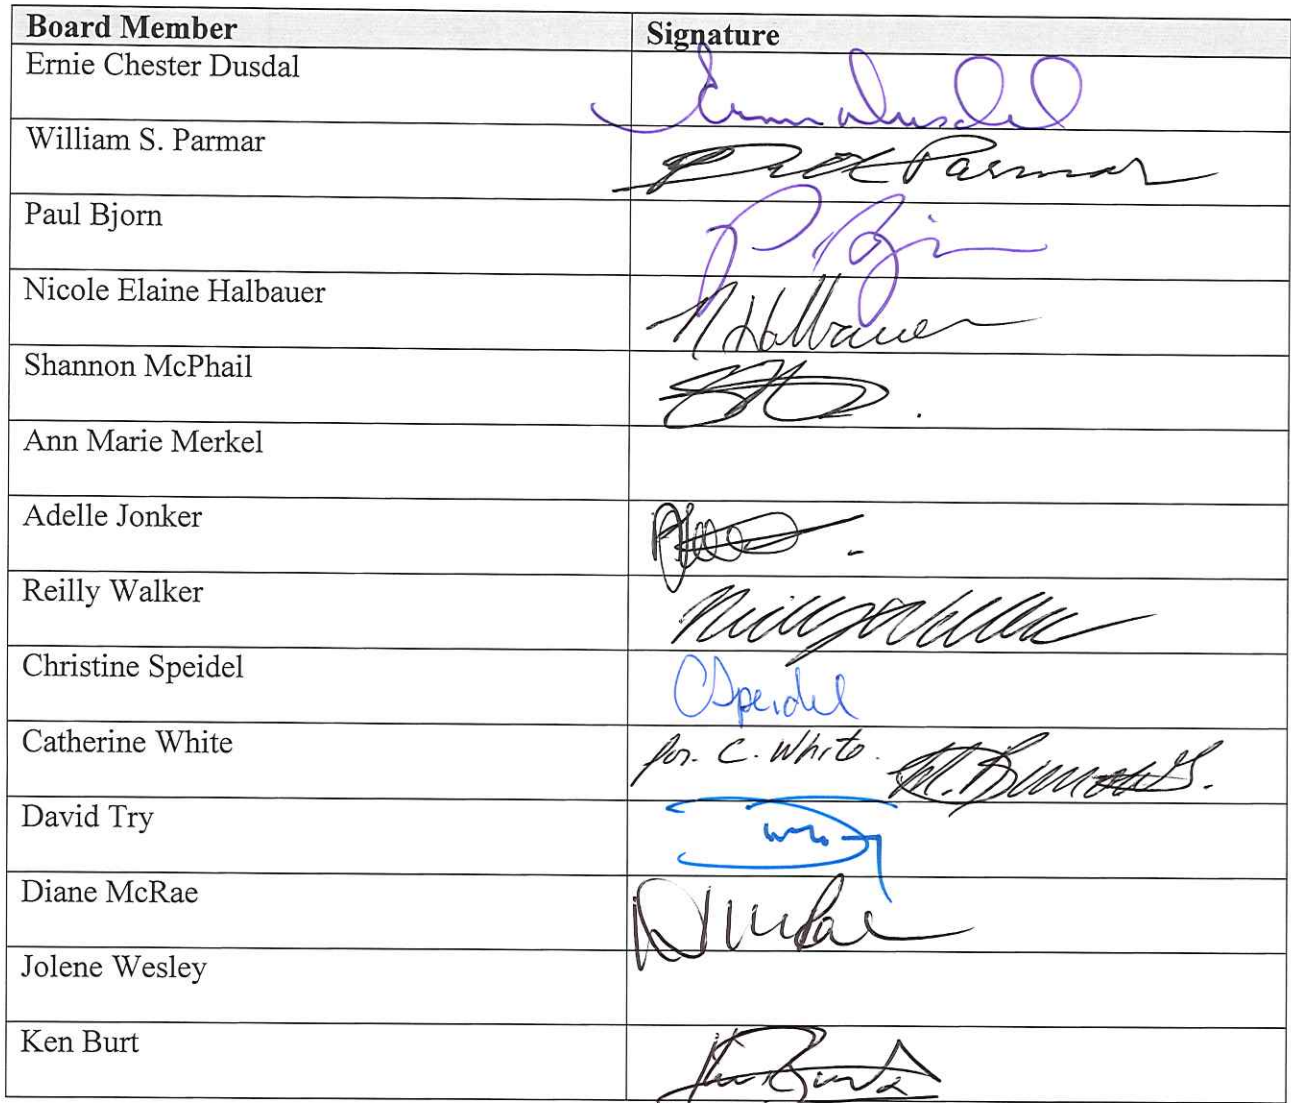 Board Member Signature
Ernie Chester Dusdal Ernie Dusdal
William S. Parmar Parmar
Paul Bjorn P. Bjorn
Nicole Elaine Halbauer N Halbauer
Shannon McPhail
Ann Marie Merkel
Adelle Jonker
Reilly Walker Reilly Walker
Christine Speidel CSpeidel
Catherine White for. C. White.
David Try
Diane McRae D McRae
Jolene Wesley
Ken Burt Ken Burt